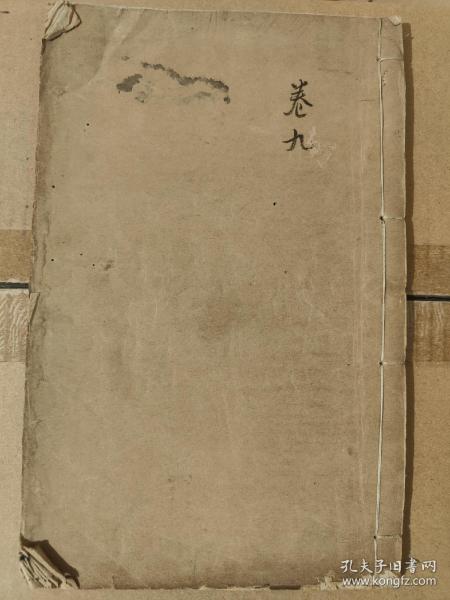 卷九
孔夫子旧书网
www.kongfz.com